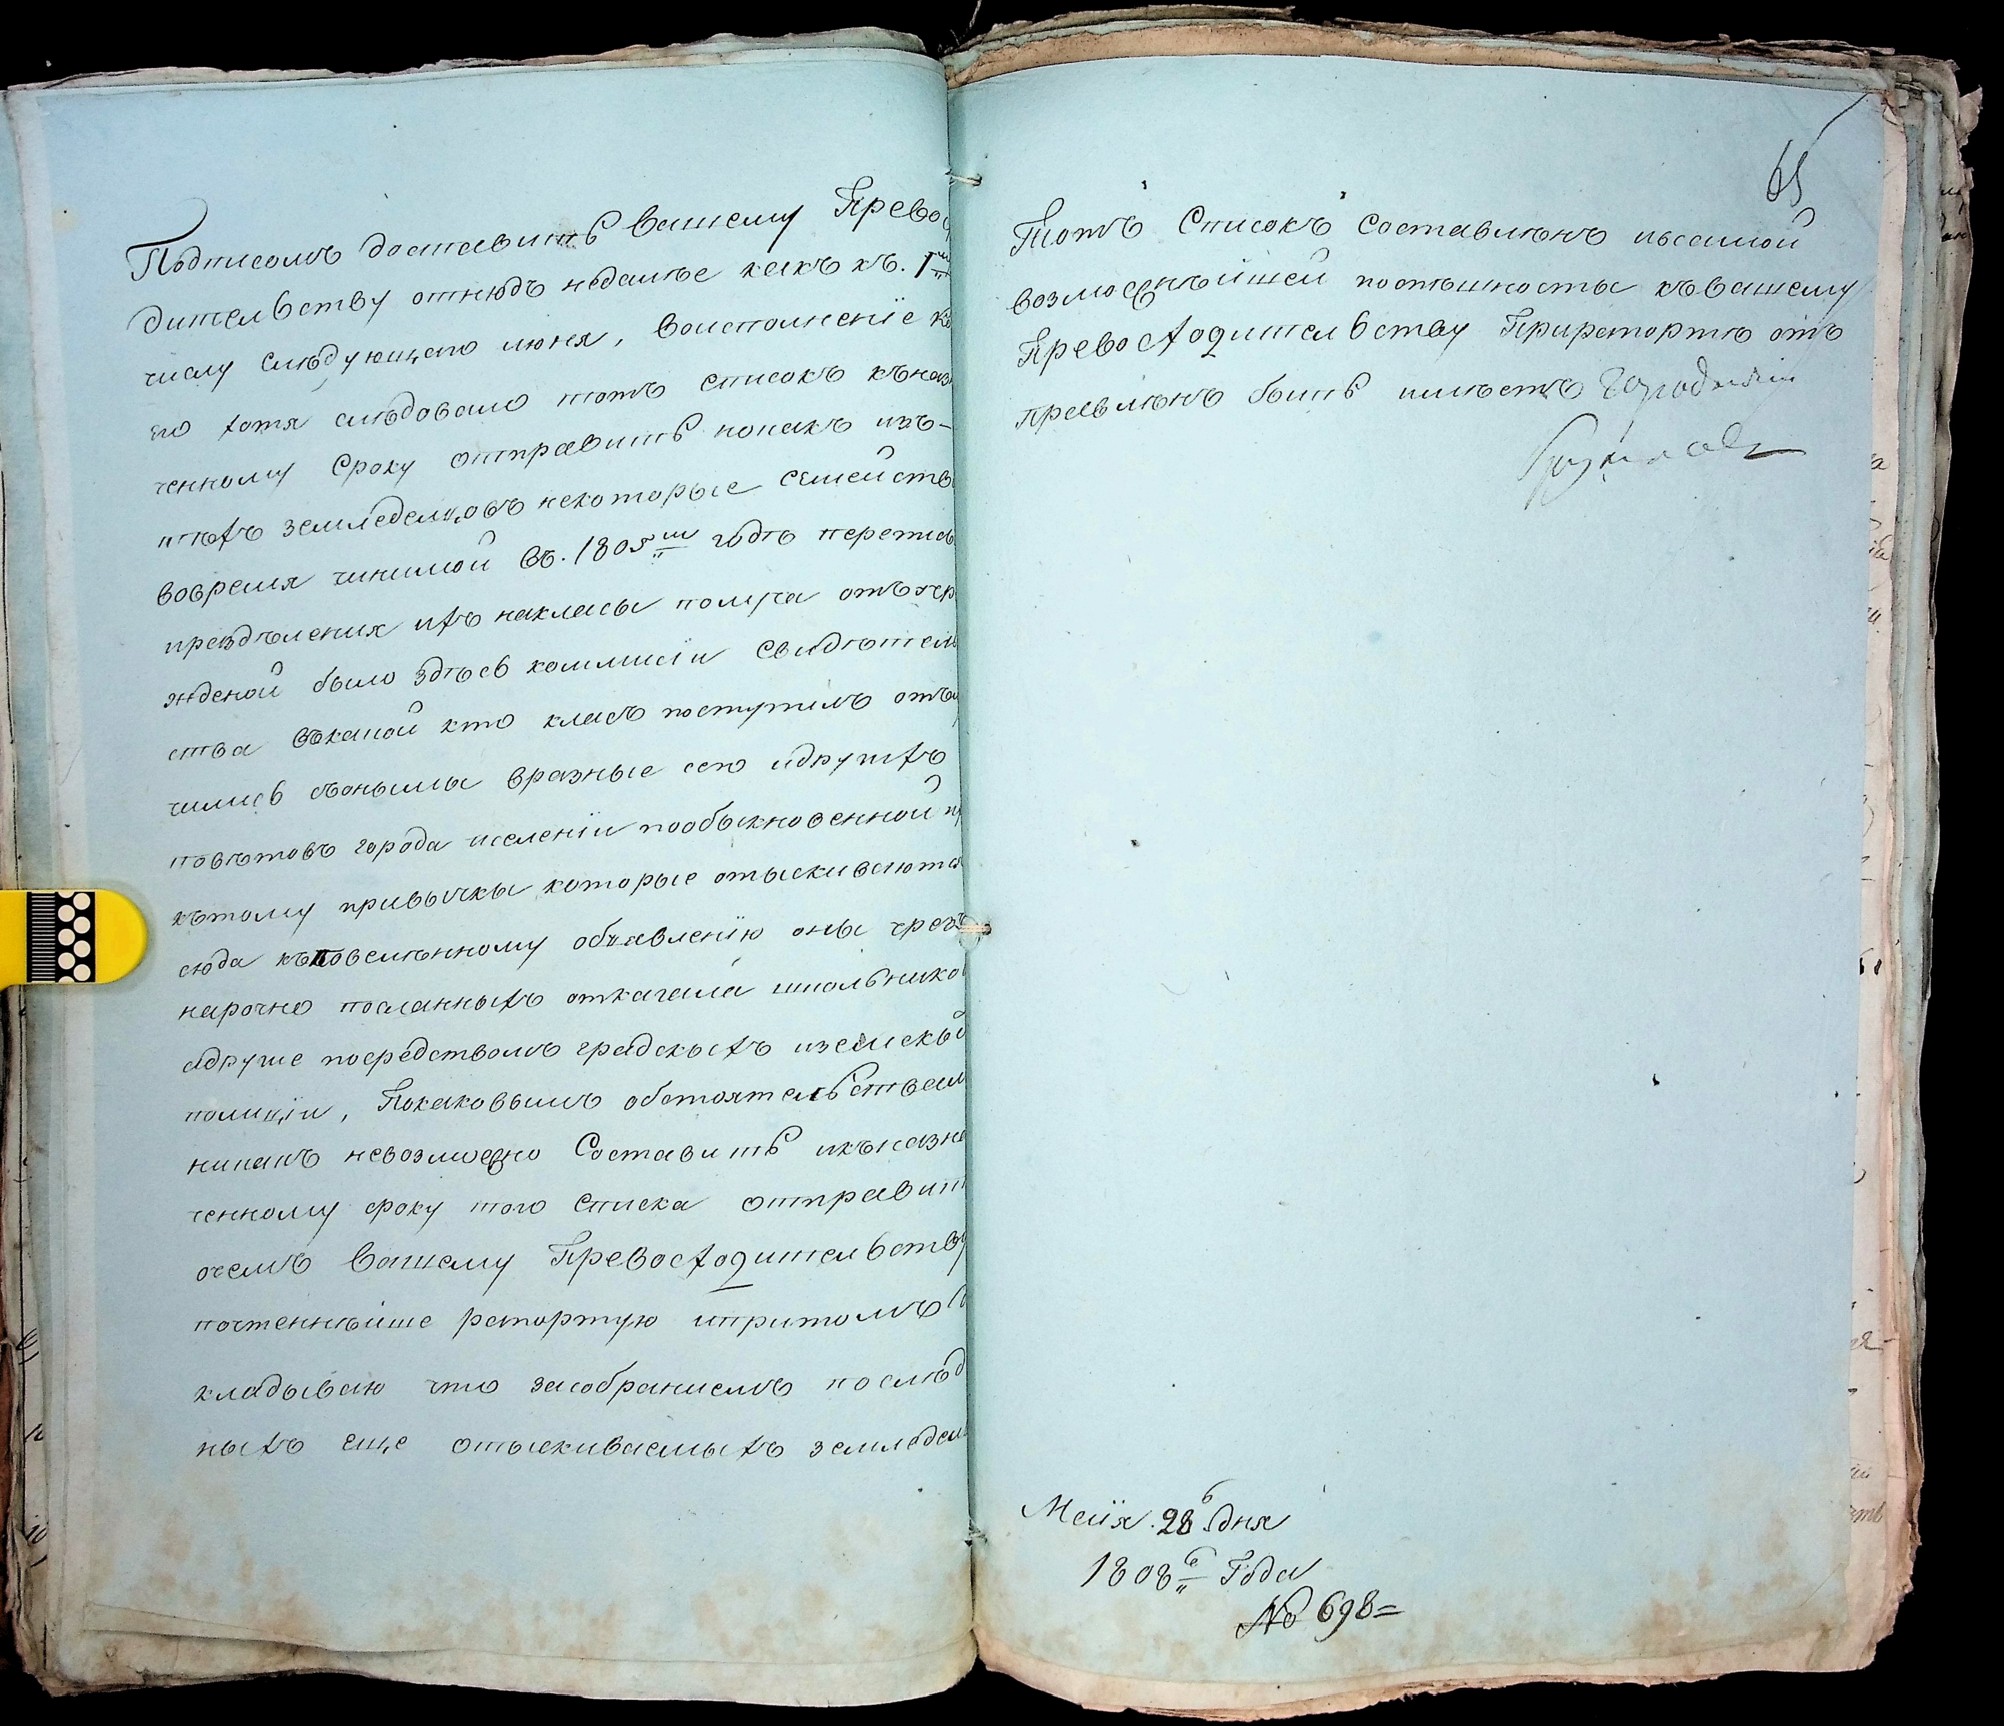 Подписомъ доставить Вашему Превос
дительству отнюдъ недалѣе какъ къ. 1му
числу слѣдующаго июня, Воисполненіе ко
го хотя слѣдовало тотъ списокъ къназн
ченному Сроку отправить ноиакъ изъ-
тѣхъ земледелцовъ некоторые семейств
вовремя чинимой въ. 1805мъ годѣ переписи
праздѣления ихъ накласы получа отъучр
жденой было здѣсь коммисіи Свидѣтель
ства въкакой кто класъ поступилъ отлу
чились съонымы вразные сего идругихъ
повѣтовъ города иселеніи пообыкновенной
кътому привычкы которые отыскиваются
сюда къповеленному объявленію оны чрезъ
нарочно посланныхъ откагала школьнико
адругие посредствомъ градскыхъ иземскы
полиціи, Покаковымъ обстоятельствам
никакъ невозможно Составить икъназна
ченному сроку того Списка отправит
очемъ Вашему Превосходительству
почтеннѣише репортую ипритомъ
кладываю что засобраниемъ послѣд
ныхъ еще отыскиваемыхъ земледел
65
Тотъ Списокъ Составлѣнъ исъсамой
возможнѣйшей поспѣшносты къвашему
Превосходительству Прирепортѣ отъ
правлѣнъ быть имѣетъ Городничий
Маія. 28го дня
1808го Года
№ 698=